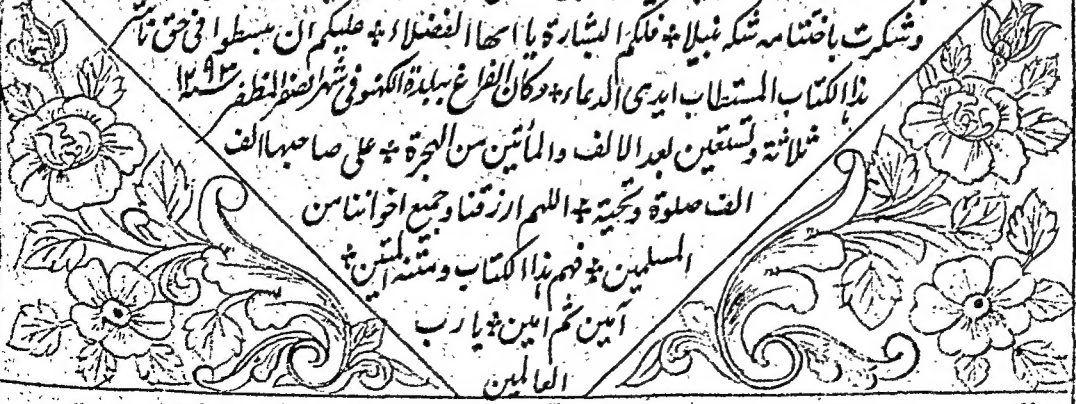 وشكرت باختتامه شكرا جميلا فلكم البشارة يا ايها الفضلاء عليكم ان تبسطوا فى حق ناشر
هذا الكتاب المستطاب ايدى الدعاء وكان الفراغ ببلدة لكهنو فى شهر صفر المظفر سنة ١٢٩٣
ثلاثة وتسعين بعد الالف والمأتين من الهجرة على صاحبها الف
الف صلوة وتحية اللهم ارزقنا وجميع اخواننا من
المسلمين فهم هذا الكتاب ومتنه المتين
آمين ثم آمين يا رب
العالمين